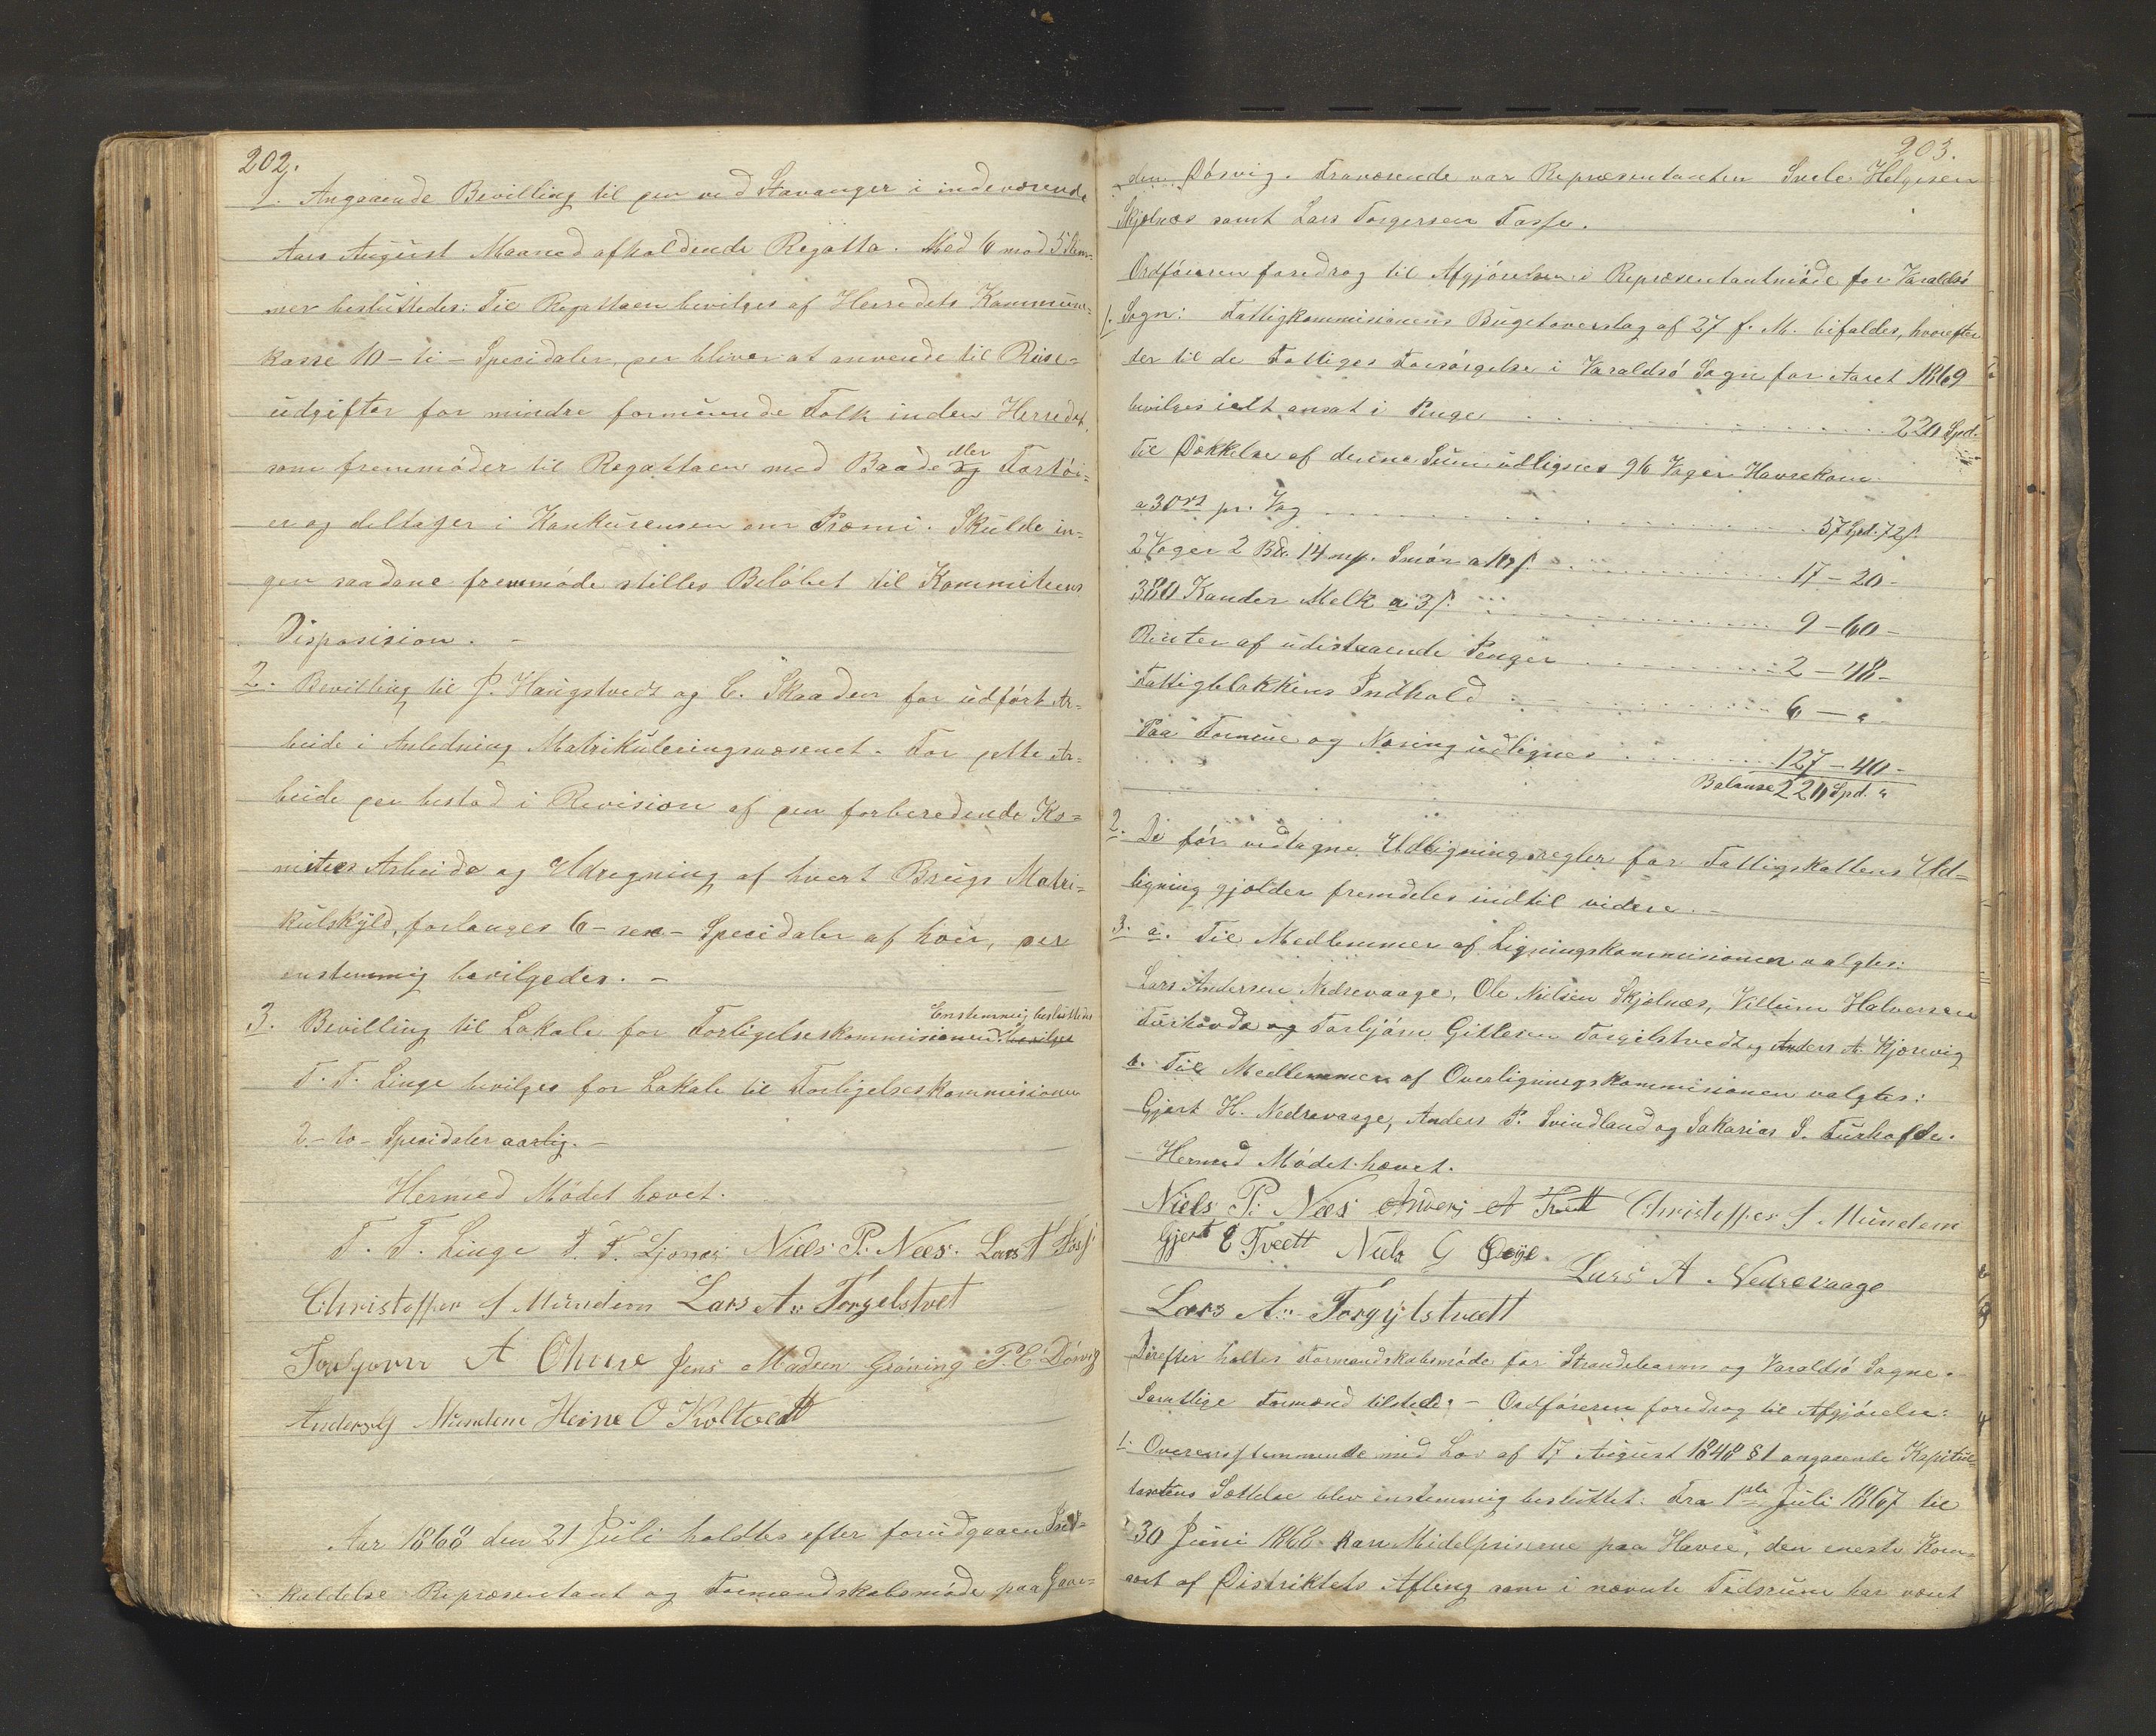 202.
1. Angaaende Bevilling til den ved Stavanger i indeværende
Aars August Maaned afholdende Regatta. Med 6 mod 5 Stem-
mer besluttedes: Til Regattaen bevilges af Herredets Kommune-
kasse 10 - ti - Specidaler, der bliver at anvende til Reise-
udgifter for mindre formuende Folk inden Herredet,
som fremmøder til Regattaen med Baade eller Fartøi-
er og deltager i Konkurensen om Præmi. Skulde in-
gen saadane fremmøde stilles Beløbet til Kommiteens
Disposision. -
2. Bevilling til P. Haugstvedt og C. Skaaden for udført Ar-
beide i Anledning Matrikuleringsvæsenet. For dette Ar-
beide der bestod i Revision af den forberedende Ko-
mitees Arbeide og Udregning af hvert Brugs Matri-
kulskyld, forlanges 6 - sex - Specidaler af hver, der
enstemmig bevilgedes. -
3. Bevilling til Lokale for Forligelseskommisionen. Enstemmig besluttedes
T. T. Linge bevilges for Lokale til Forligelseskommisionen
2 - to - Specidaler aarlig. -
Hermed Mødet hævet.
T. T. Linge T. T. Ljones Niels P. Næs. Lars T Fosse
Christoffer S Mundem Lars A. Torgelstvet
Torbjørn A Ohme Jens Madsen Grøning P. E. Døsvig
Anders G Mundem Heine O Koltvedt
Aar 1868 den 21 Juli holdtes efter forudgaaen Ind-
kaldelse Repræsentant og Formandskabsmøde paa Gaar-
203.
den Døsvig. Fraværende var Repræsentanten Helgesen
Skjelnæs samt Lars Torgersen Fosse.
Ordføreren foredrog til Afgjørelse i Repræsentantmøde for Varaldsø
1. Sogn: Fattigkommisionens Bugetoverslag af 27 f. M. bifaldes, hvorefter
der til de Fattiges Forsørgelse i Varaldsø Sogn for Aaret 1869
bevilges ialt ansat i Penge 220 Spd.
Til Dækkelse af denne Sum udlignes 96 Vager Havrekorn
a 30 pr. Vog 57 Spd. 72 s.
2 Voger 2 Bd. 14 mk. Smør a s. 17 - 20 -
380 Kander Melk a 3 s. 9 - 60 -
Renter af udestaaende Penger 2 - 48 -
Fattigblokkens Indhold 6 - "
Paa Formue og Næring udlignes 127 - 40 -
Balanse 220 Spd. "
2. De før vedtagne Udligningsregler for Fattigskattens Ud-
ligning gjælder fremdeles indtil videre. -
3. a. Til Medlemmer af Ligningskommisionen valgtes:
Lars Andersen Nedrevaage, Ole Nielsen Skjelnæs, Villum Halvorsen
Turhovde og Torbjørn Gitlesen Torgilstvedt og Anders A. Kjærevig
b. Til Medlemmer af Overligningskommisionen valgtes:
Gjert H. Nedrevaage, Anders P. Svindland og Sakarias S. Turhofde.
Hermed Mødet hævet.
Niels P. Næs Anders A Tvett Christoffer S Mundem
Gjert E Tveett Niels G Øvje. Lars A. Nedrevaage
Lars A. Torgylstvedt
Derefter holtes Formandskabsmøde for Strandebarms og Varaldsø Sogne.
Samtlige Formænd tilstede. - Ordføreren foredrog til Afgjørelse:
1. Overensstemmende med Lov af 17 August 1848 § 1 angaaende Kapitul-
takstens Sættelse blev enstemmig besluttet: Fra 1ste Juli 1867 til
30 Juni 1868 kan Midelpriserne paa Havre, den eneste Korn-
sort af Distriktets Afling som i nævnte Tidsrum har været